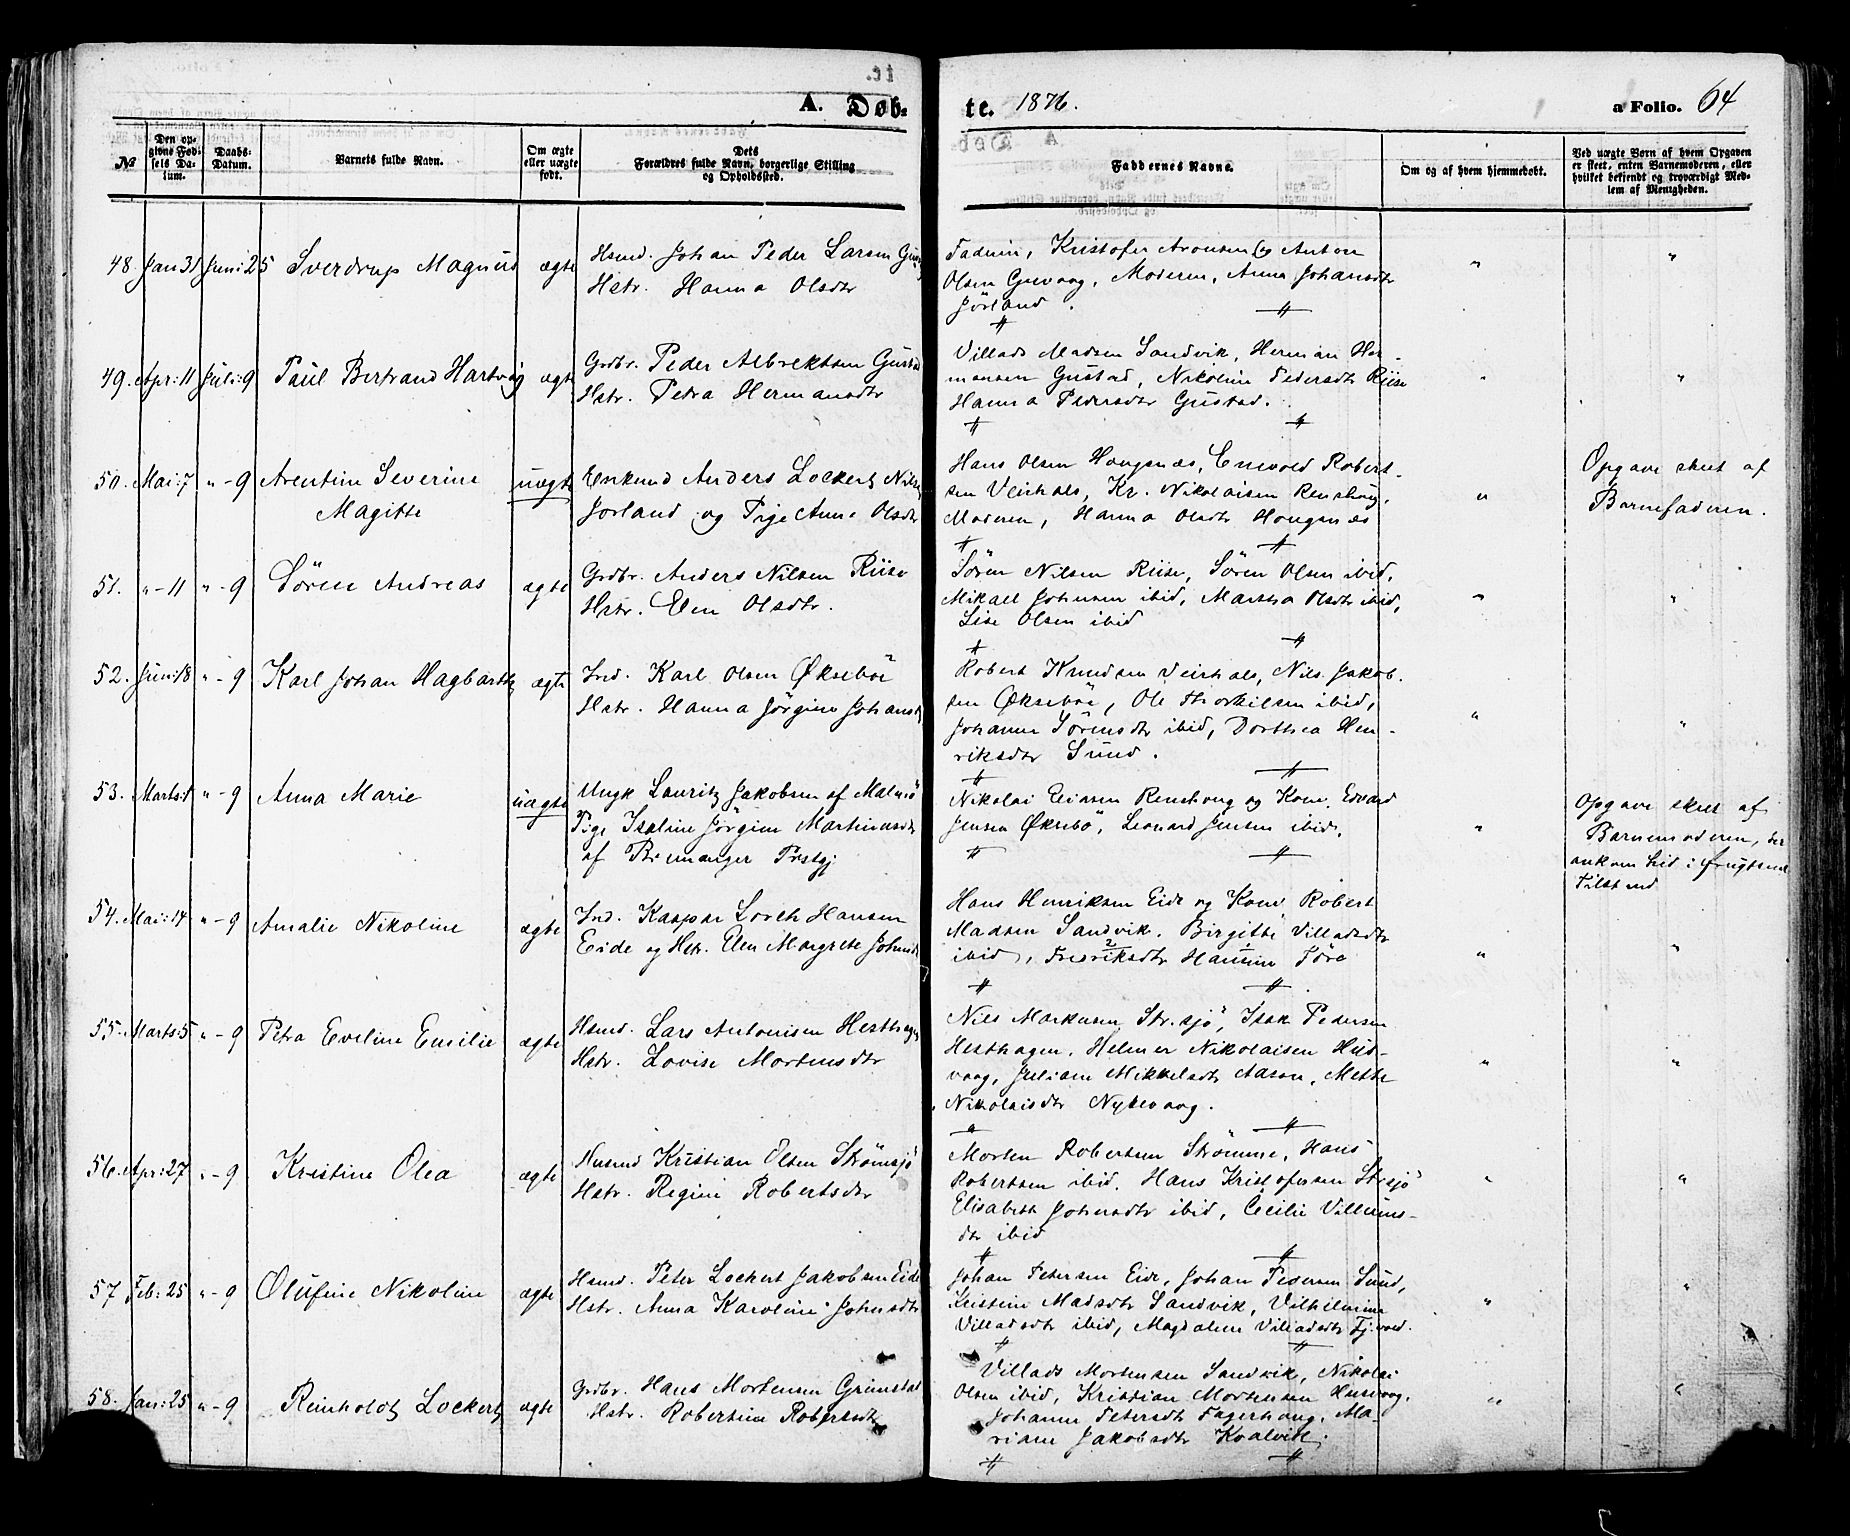 A. Døb-
te. 1876.
a Folio. 64
№
Den op-
givne Fød-
sels Da-
tum.
Daabs-
Datum.
Barnets fulde Navn.
Om ægte
eller uægte
født.
Dets
Forældres fulde Navn, borgerlige Stilling
og Opholdssted.
Faddernes Navne.
Om og af hvem hjemmedøbt.
Ved uægte Børn af hvem Opgaven
er skeet, enten Barnemoderen, eller
hvilket bekjendt og troværdigt Med-
lem af Menigheden.
48. Jan 31 Juni: 25 Sverdrup Magnus ægte
Hsmd. Johan Peder Larsen
Hstr. Hanna Olsdtr
Faderen, Kristofer Aronsen og Anton
Olsen Guvaag, Moderen, Anna Johansdtr
Jörland.
49. Apr: 11 Juli: 9 Paul Bertrand Hartvig ægte
Grdbr. Peder Albrektsen Gustad
Hstr. Petra Hermansdtr
Villads Madsen Sandvik, Herman Her-
mansen Gustad, Nikoline Pedersdtr Riise
Hanna Pedersdtr Gustad.
50. Mai: 7 " - 9 Arentine Severine
Magitte
uægte
Enkemd Anders Lockert Nilsen
Jorland og Pige Anne Olsdtr
Hans Olsen Hougsnæs, Enevold Robert-
sen Veirhals, Kr. Nikolaisen Renshoug,
Moderen, Hanna Olsdtr Hougsnæs
Opgave skeet af
Barnefaderen.
51. " - 11 " - 9 Sören Andreas ægte
Grdbr. Anders Nilsen Riise
Hstr. Elen Olsdtr.
Sören Nilsen Riise, Sören Olsen ibid,
Mikael Johnsen ibid, Martha Olsdtr ibid,
Lise Olsen ibid
52. Juni: 18 " - 9 Karl Johan Hagbarth ægte
Ind. Karl Olsen Øksebøe
Hstr. Hanna Jörgine Johansdtr
Robert Knudsen Veirhals, Nils Jakob-
sen Øksebøe, Ole Thorkilsen ibid,
Johanna Sörensdtr ibid, Dorthea Hen-
riksdtr Sund.
53. Marts: 1 " - 9 Anna Marie uægte
Ungk Lauritz Jakobsen af Malmö
Pige Iseline Jörgine Martinusdtr
af Bremanger Prstgj
Nikolai Eliasen Renshoug og Kone, Edvard
Jensen Øksebö, Leonard Jensen ibid.
Opgave skeet af
Barnemoderen, der
ankom hid i frugtsomml
Tilstand
54. Mai: 14 " - 9 Amalie Nikoline ægte
Ind. Kaspar Loreth Hansen
Eide og Hstr. Elen Margrete Johnsdtr
Hans Henriksen Eide og Kone, Robert
Madsen Sandvik, Birgitte Villadsdtr
ibid, Fredriksdtr Hansine Töre
55. Marts: 5 " - 9 Petra Eveline Emilie ægte
Hsmd. Lars Antonisen Hesthagen
Hstr. Lovise Mortensdtr
Nils Markusen Str.sjö, Isak Pedersen
Hesthagen, Helmer Nikolaisen Hus-
vaag, Juliane Mikkelsdtr Aason, Mette
Nikolaisdtr Nykvaag.
56. Apr: 27 " - 9 Kristine Olea ægte
Husmd Kristian Olsen Strömsjö
Hstr. Regine Robertsdtr
Morten Robertsen Strömme, Hans
Robertsen ibid, Hans Kristofersen Strsjö
Elisabeth Johnsdtr ibid, Cecilie Villums-
dtr ibid
57. Feb: 25 " - 9 Olufine Nikoline ægte
Hsmd. Peter Lockert Jakobsen Eide
Hstr. Anna Karoline Johnsdtr
Johan Petersen Eide, Johan Pedersen Sund,
Kristine Madsdtr Sandvik, Vilhelmine
Villadsdtr ibid, Magdalene Villadsdtr Fjærvold.
58. Jan: 25 " - 9 Reinholdt Lockert ægte
Grdbr. Hans Mortensen Grimstad
Hstr. Robertine Robertsdtr
Villads Mortensen Sandvik, Nikolai
Olsen ibid, Kristian Mortensen Husvaag,
Johanne Petersdtr Fagerhaug, Ma-
riane Jakobsdtr Kvalvik.